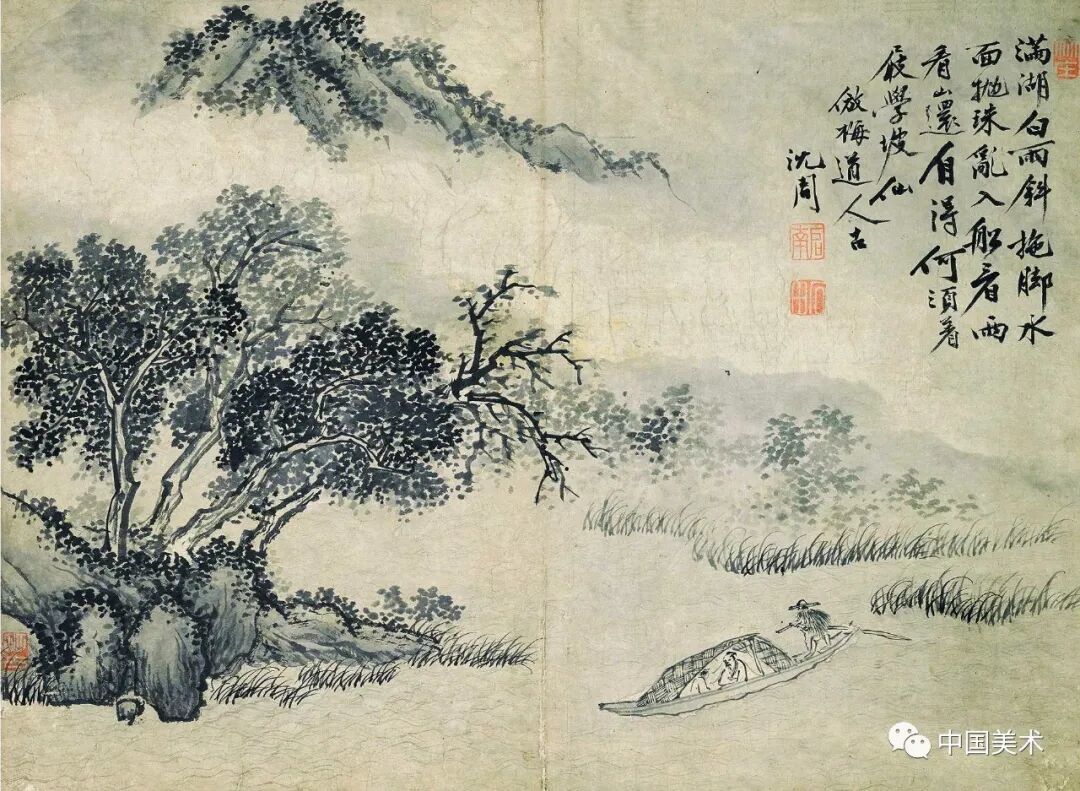 滿湖白雨斜拖脚水
面抛珠亂入船看雨
看山還自得何須着
屐學坡仙
倣梅道人
沈周
中国美术